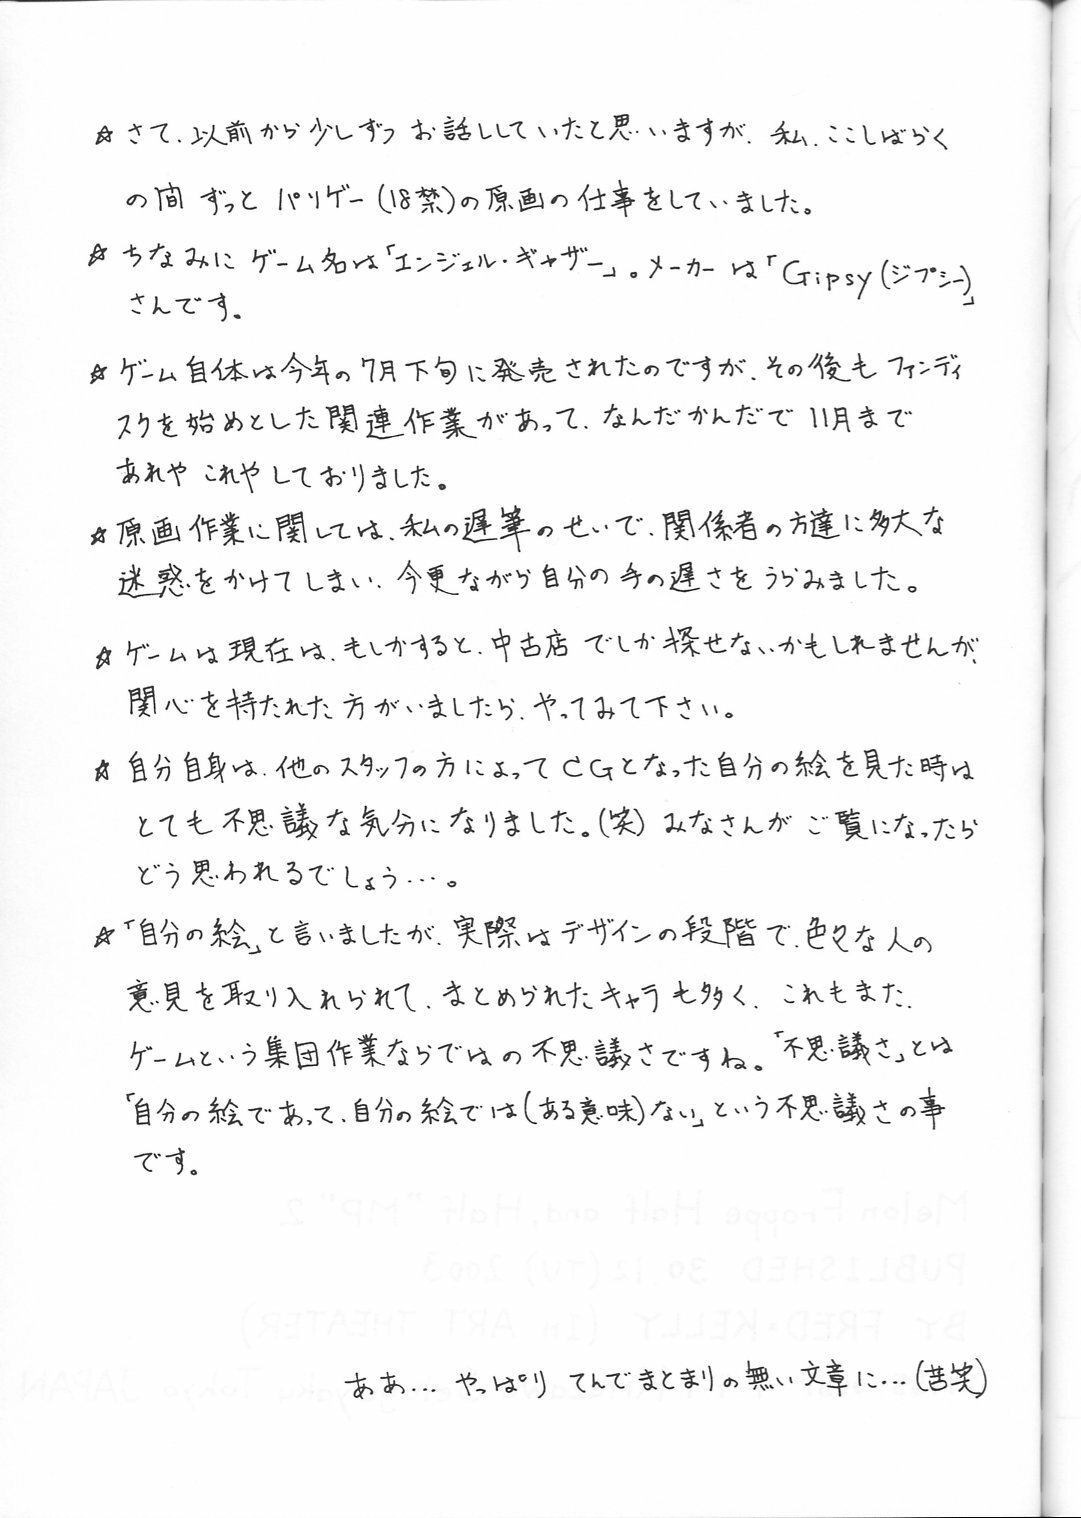 ☆さて、以前から少しずつお話ししていたと思いますが、私、ここしばらく
の間ずっとパソゲー(18禁)の原画の仕事をしていました。
☆ちなみにゲーム名は「エンジェル・ギャザー」。メーカーは「Gipsy(ジプシー)」
さんです。
☆ゲーム自体は今年の7月下旬に発売されたのですが、その後もファンディ
スクを始めとした関連作業があって、なんだかんだで11月まで
あれやこれやしておりました。
☆原画作業に関しては、私の遅筆のせいで、関係者の方達に多大な
迷惑をかけてしまい、今更ながら自分の手の遅さをうらみました。
☆ゲームは現在は、もしかすると、中古店でしか探せないかもしれませんが、
関心を持たれた方がいましたら、やってみて下さい。
☆自分自身は、他のスタッフの方によってCGとなった自分の絵を見た時は
とても不思議な気分になりました。(笑)みなさんがご覧になったら
どう思われるでしょう…。
☆「自分の絵」と言いましたが、実際はデザインの段階で、色々な人の
意見を取り入れられて、まとめられたキャラも多く、これもまた、
ゲームという集団作業ならではの不思議さですね。「不思議さ」とは
「自分の絵であって、自分の絵では(ある意味)ない」という不思議さの事
です。
Melon Frappe Half and Half "MP" 2
PUBLISHED 30.12(TU) 2003
BY FRED・KELLY (In ART THEATER)
ああ…やっぱりてんでまとまりの無い文章に…(苦笑)